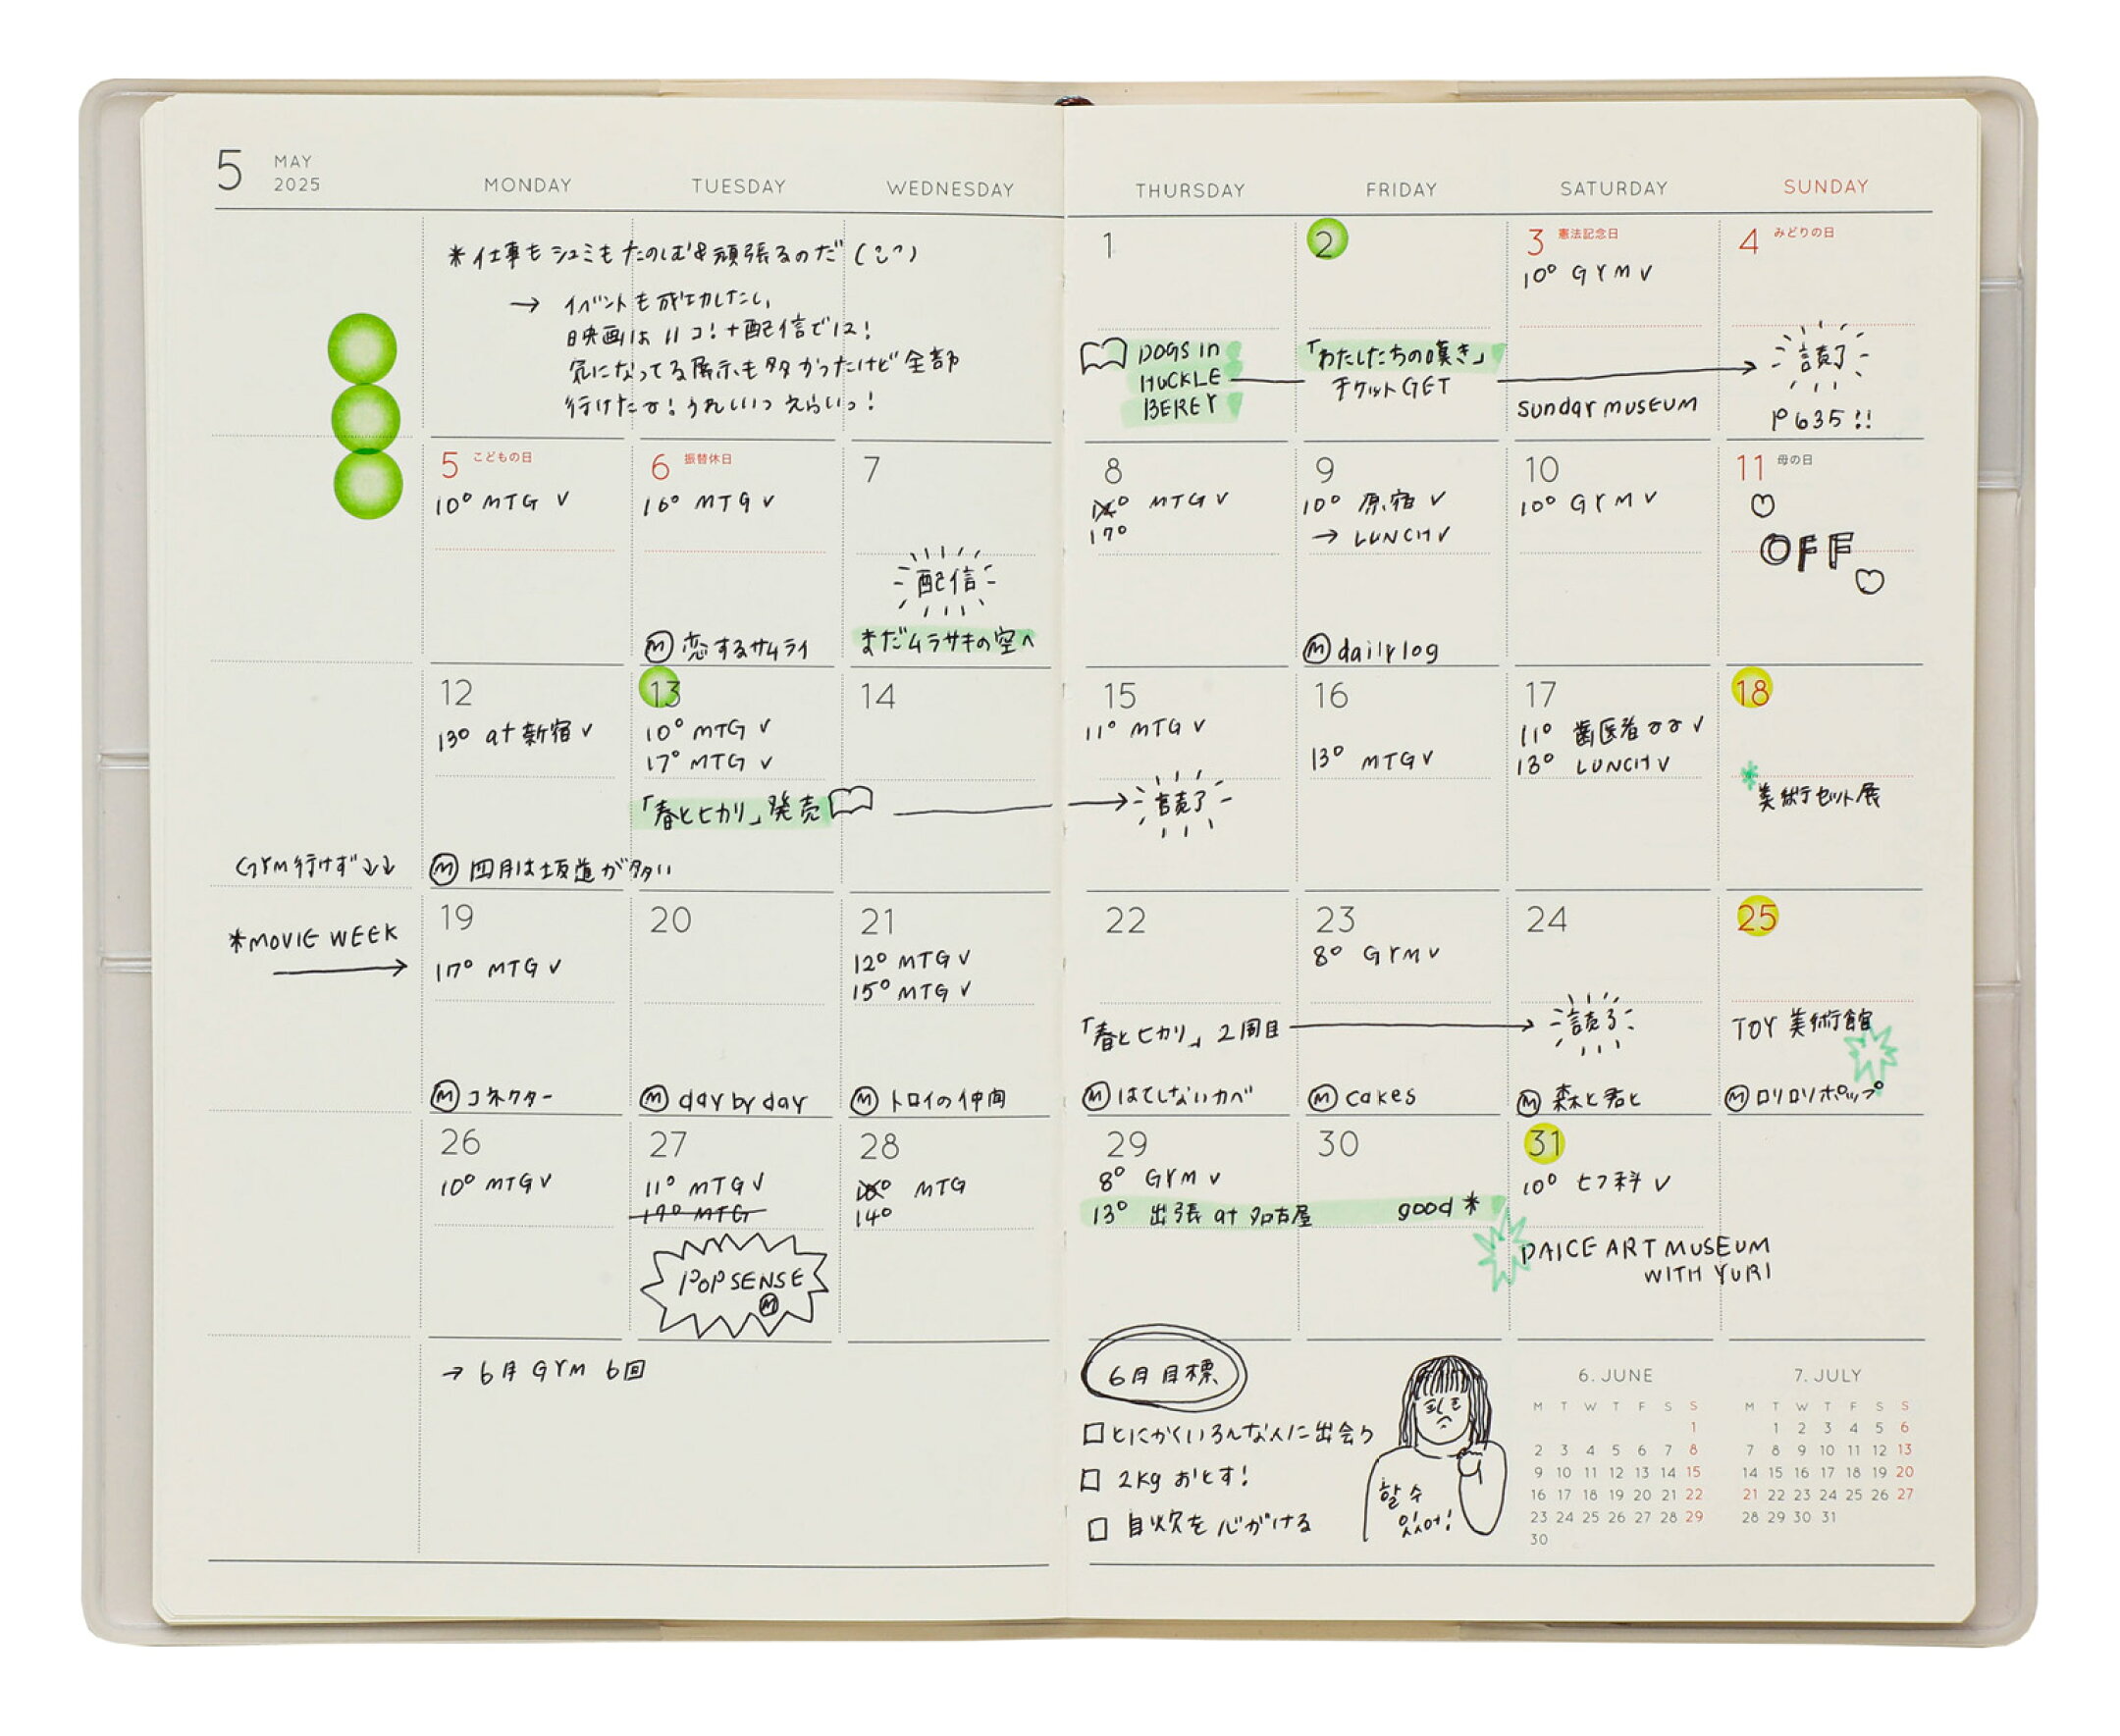 5 MAY
2025
MONDAY TUESDAY WEDNESDAY THURSDAY FRIDAY SATURDAY SUNDAY
*仕事もシュミもたのしむ&頑張るのだ
→ イベントも成功したし、
映画は11コ!+配信で12!
気になってる展示も多かったけど全部
行けたな!うれしいっえらいっ!
1
DOGS in
HUCKLE
BEREY
2
「わたしたちの嘆き」
チケットGET
3 憲法記念日
10⁰ GYM ✓
Sunday MUSEUM
4 みどりの日
読了
P635!!
5 こどもの日
10⁰ MTG ✓
6 振替休日
16⁰ MTG ✓
Ⓜ 恋するサムライ
7
配信
まだムラサキの空へ
8
MTG ✓
17⁰
9
10⁰ 原宿 ✓
→ LUNCH ✓
Ⓜ daily log
10
10⁰ GYM ✓
11 母の日
♡
OFF
♡
12
13⁰ at 新宿 ✓
Ⓜ 四月は坂道が多い
13
10⁰ MTG ✓
17⁰ MTG ✓
「春とヒカリ」発売
14
15
11⁰ MTG ✓
読了
16
13⁰ MTG ✓
17
11⁰ 歯医者 ✓
13⁰ LUNCH ✓
18
美術セット展
GYM行けず↓↓
*MOVIE WEEK
→
19
17⁰ MTG ✓
Ⓜ コネクター
20
Ⓜ day by day
21
12⁰ MTG ✓
15⁰ MTG ✓
Ⓜ トロイの仲間
22
「春とヒカリ」2周目
Ⓜ はてしないカベ
23
8⁰ GYM ✓
Ⓜ cakes
24
読了
Ⓜ 森と君と
25
TOY 美術館
Ⓜ ロリロリポップ
26
10⁰ MTG ✓
27
11⁰ MTG ✓
17⁰ MTG
POP SENSE
Ⓜ
28
MTG
14⁰
29
8⁰ GYM ✓
13⁰ 出張 at 名古屋
30
good *
31
10⁰ ヒフ科 ✓
PAICE ART MUSEUM
WITH YURI
→ 6月 GYM 6回
6月目標
□ とにかくいろんな人に出会う
□ 2Kg おとす!
□ 自炊を心がける
할 수
있어!
6. JUNE
M T W T F S S
1
2 3 4 5 6 7 8
9 10 11 12 13 14 15
16 17 18 19 20 21 22
23 24 25 26 27 28 29
30
7. JULY
M T W T F S S
1 2 3 4 5 6
7 8 9 10 11 12 13
14 15 16 17 18 19 20
21 22 23 24 25 26 27
28 29 30 31